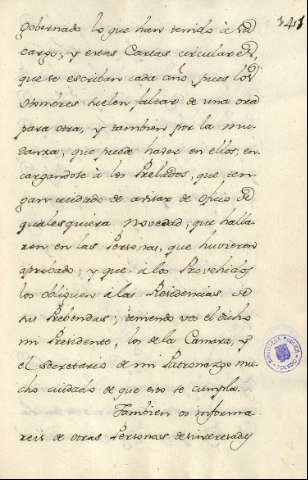 gobernado lo que han tenido â su
cargo, y estas Cartas circulares,
que se escriban cada año, pues los
Hombres suelen faltar de una ora
para otra, y tambien por la mu-
danza, que puede hazer en ellos, en
cargandose â los Prelados, que ten
gan cuidado de avisar de oficio de
qualesquiera novedad, que halla
ren en las Personas, que huvieren
aprobado; y que â los Provehidos
los obliguen â las Residencias de
sus Prebendas; teniendo vos el dicho
mi Presidente, los de la Camara, y
el secretario de mi Patronazgo mu
cho cuidado de que esto se cumpla.
Tambien os informa
reis de otras Personas desinteresadas